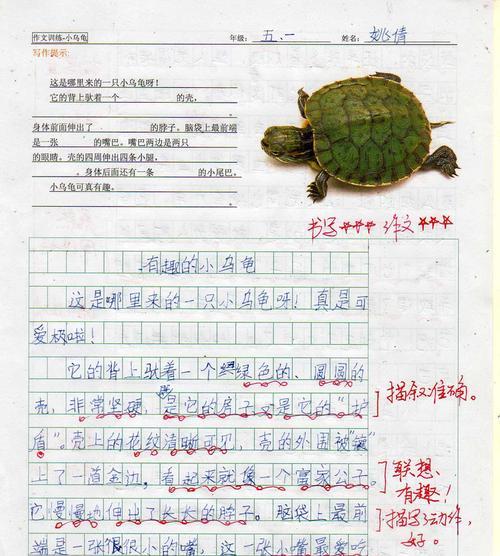 作文训练-小乌龟 年级: 五.一 姓名: 姚倩
写作提示:
这是哪里来的一只小乌龟呀!
它的背上驮着一个 的壳,
身体前面伸出了 的脖子。脑袋上最前端
是一张 的嘴巴。嘴巴两边是两只
的眼睛。壳的四周伸出四条小腿,
。身体后面还有一条 的小尾巴。
小乌龟可真有趣。
书写☆☆☆ 作文☆☆☆
有趣的小乌龟
这是哪里来的一只小乌龟呀!真是可
爱极啦!
它的背上驮着一个绿色的、圆圆的
壳,非常坚硬,是它的房子又是它的“护
描叙准确。
盾”。壳上的花纹清晰可见,壳的外围被“镶”
上了一道金边,看起来就像一个富家公子。
联想、
有趣!
它慢慢地伸出了长长的脖子。脑袋上最前
描写动作,
好。
端是一张很很小的嘴,这张小嘴最爱吃